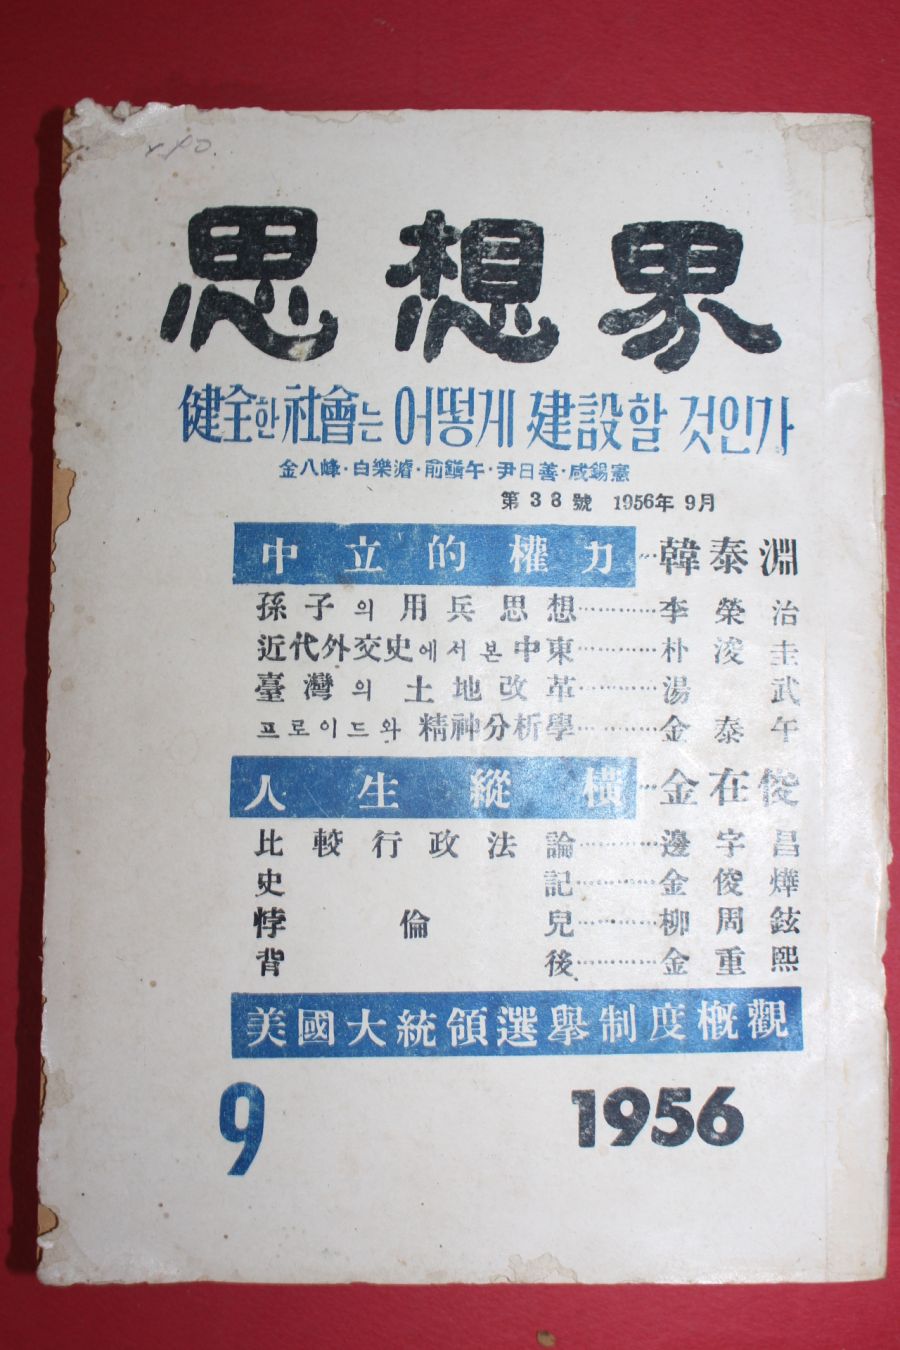 思想界
健全한 社會는 어떻게 建設할 것인가
金八峰·白樂濬·兪鎭午·尹日善·咸錫憲
第38號 1956年 9月
中立的權力…韓泰淵
孫子의 用兵思想…………李榮治
近代外交史에서 본 中東…………朴浚圭
臺灣의 土地改革…………湯武
프로이드와 精神分析學…………金泰午
人生縱橫…金在俊
比較行政法論…………邊宇昌
史記…………金俊燁
悖倫兒…………柳周鉉
背後…………金重熙
美國大統領選擧制度槪觀
9 1956